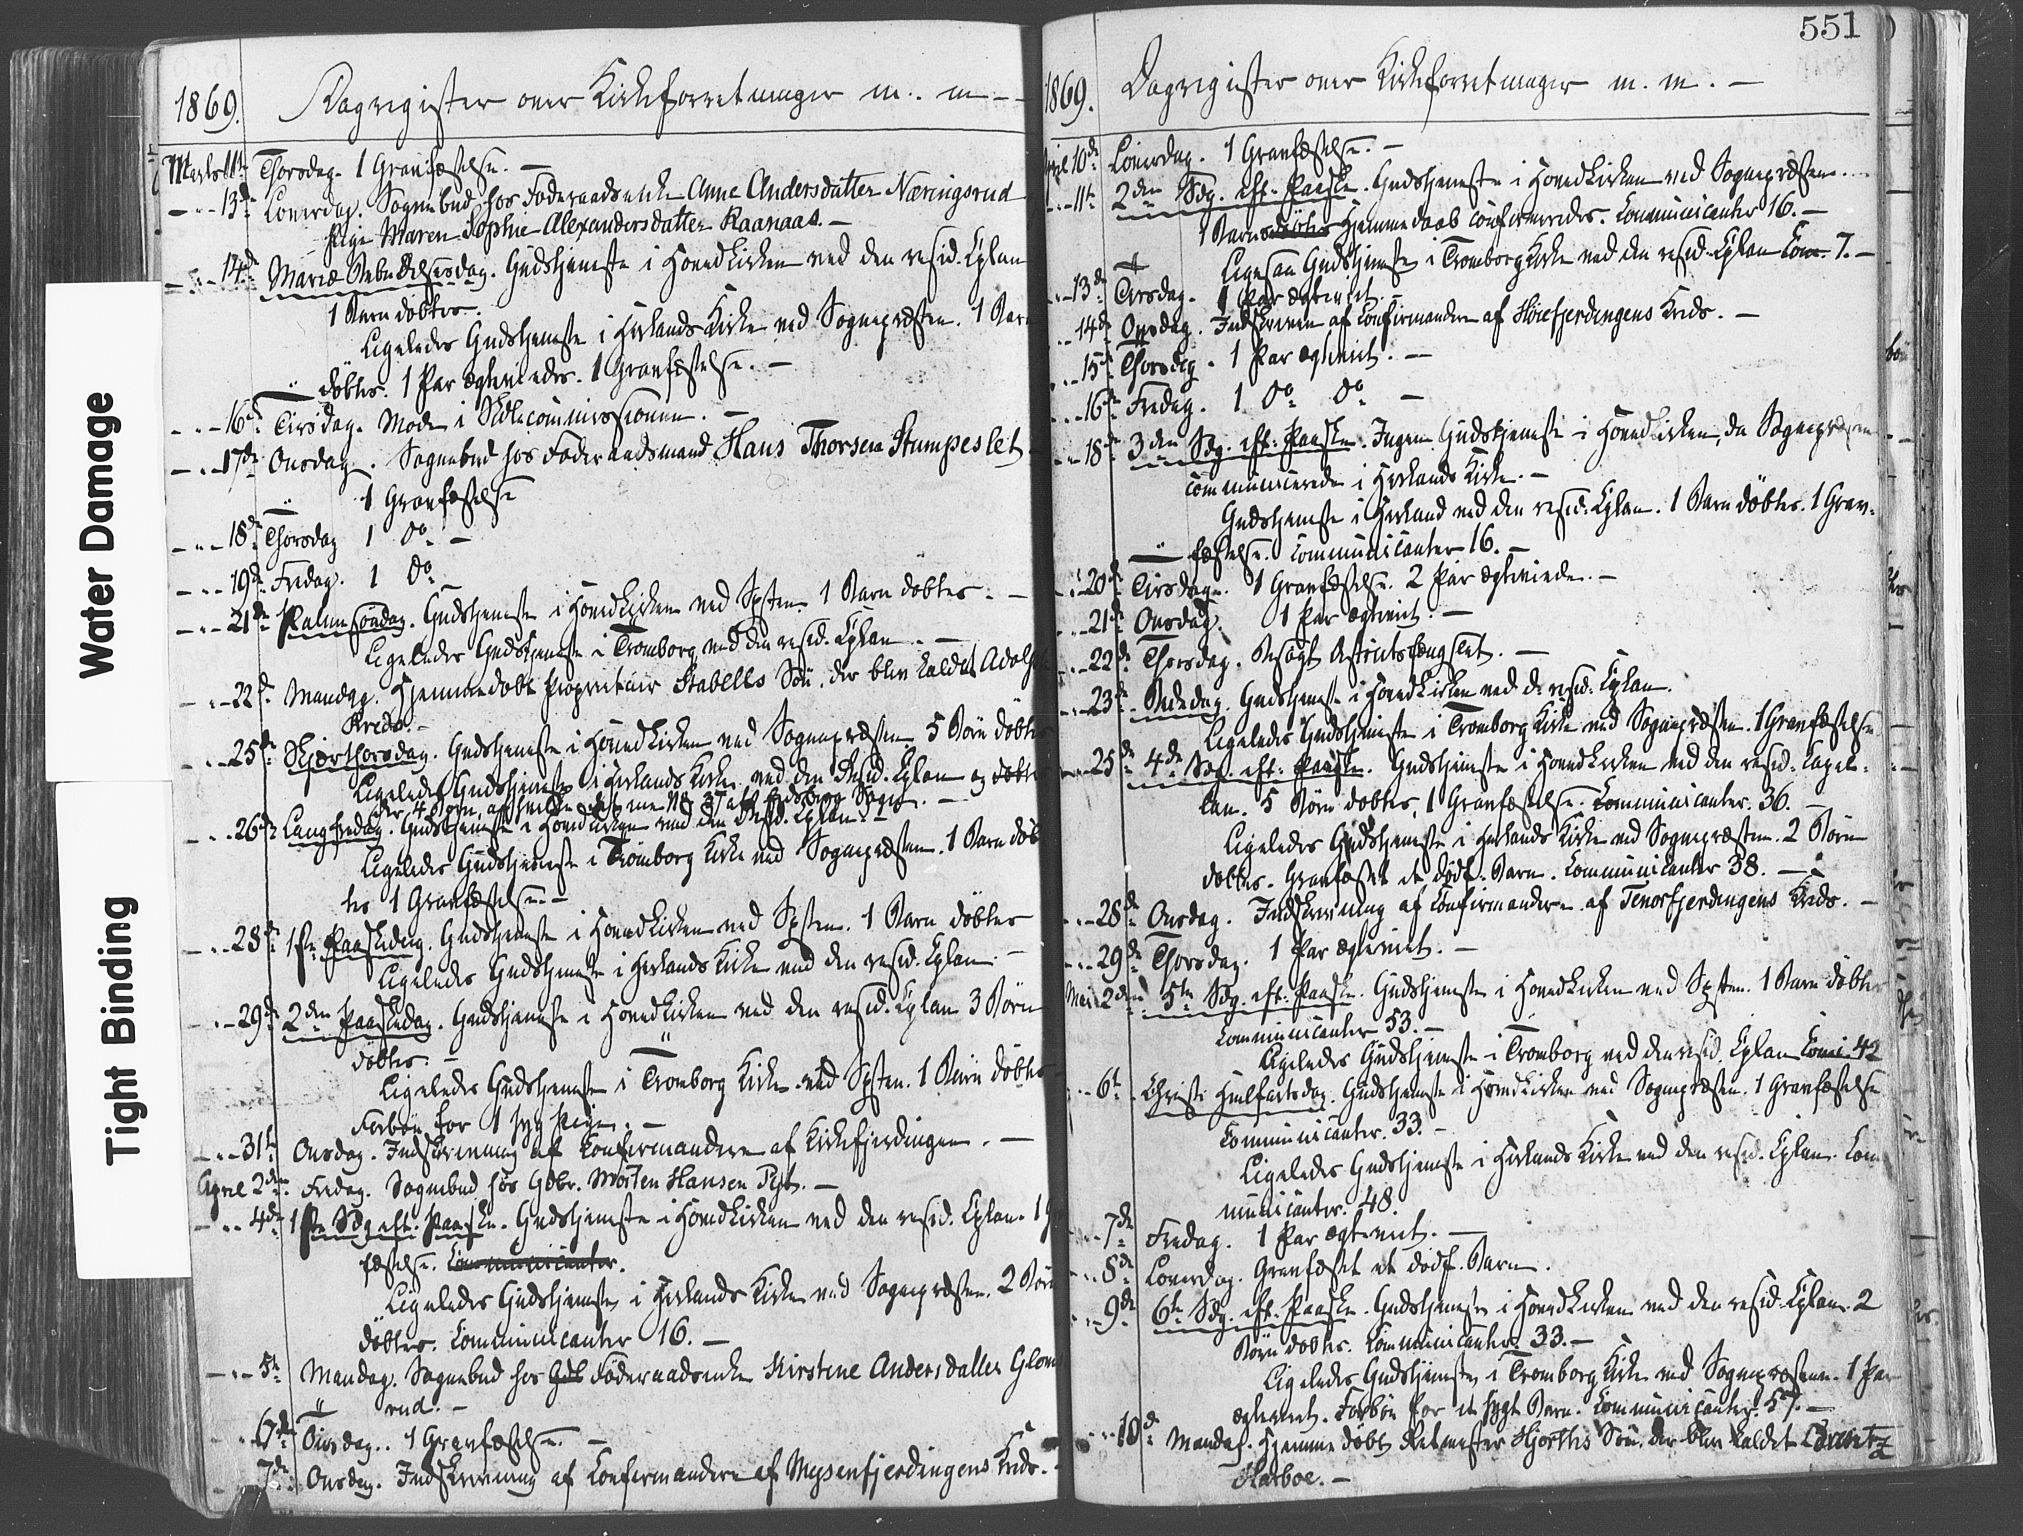 Water Damage
Tight Binding
1869. Dagregister over Kirkeforretninger m. m. —
Marts 11te Thorsdag. 1 Gravfæstelse. —
— " — 13de Löverdag. Sognebud hos Föderaadsenke Anne Andersdatter Næringsrud
Pige Maren Sophie Alexandersdatter Raanaas. —
— " — 14de Mariæ Bebudelsesdag. Gudstjeneste i Hovedkirken ved den resid. Cplan
1 Barn döbtes.
Ligeledes Gudstjeneste i Herlands Kirke ved Sognepræsten. 1 Barn
döbtes. 1 Par ægteviedes. 1 Gravfæstelse. —
— " — 16de Tirsdag. Möde i Skolecommissionen. —
— " — 17de Onsdag. Sognebud hos Föderaadsmand Hans Thorsen Stumpeslet
1 Gravfæstelse
— " — 18de Thorsdag 1 Do —
— " — 19de Fredag. 1 Do —
— " — 21de Palmesöndag. Gudstjeneste i Hovedkirken ved Spsten. 1 Barn döbtes. —
Ligeledes Gudstjeneste i Tromborg ved den resid. Cplan. —
— " — 22de Mandag. Hjemmedöbt Proprietair Stabells Sön, der blev kaldet Adolph
Breda. —
— " — 25de Skjærthorsdag. Gudstjeneste i Hovedkirken ved Sognepræsten. 5 Börn döbtes
Ligeledes Gudstjeneste i Herlands Kirke ved den Resid. Cplan og döbtes
der 4 Börn, af hvilke det ene No 35 af Eidsberg Sogn. —
— " — 26de Langfredag. Gudstjeneste i Hovedkirken ved den Resid. Cplan. —
Ligeledes Gudstjeneste i Tromborg Kirke ved Sognepræsten. 1 Barn döb
tes 1 Gravfæstelse. —
— " — 28de 1ste Paaskedag. Gudstjeneste i Hovedkirken ved Spsten. 1 Barn döbtes
Ligeledes Gudstjeneste i Herlands Kirke ved den resid. Cplan. —
— " — 29de 2den Paaskedag. Gudstjeneste i Hovedkirken ved den resid. Cplan 3 Börn
döbtes. —
Ligeledes Gudstjeneste i Tromborg Kirke ved Spsten. 1 Barn döbtes
Forbön for 1 syg Pige. —
— " — 31te Onsdag. Indskrivning af Confirmandere af Kirkefjerdingen. —
April 2den Fredag. Sognebud hos Gdbr. Morten Hansen
— " — 4de 1ste Sdg. eft. Paaske. Gudstjeneste i Hovedkirken ved den resid. Cplan. 1 Gr
fæstelse. Communicanter.
Ligeledes Gudstjeneste i Herlands Kirke ved Sognepræsten. 2 Börn
döbtes. Communicanter 16. —
— " — 5te Mandag. Sognebud hos Gdb Föderaadsenke Kirstine Andersdatter Glom
rud. —
6te Tirsdag. 1 Gravfæstelse. —
7de Onsdag. Indskrivning af Confirmandere af Mysenfjerdingens Kreds. —
551
1869. Dagregister over Kirkeforretninger m. m. —
April 10de Löverdag. 1 Gravfæstelse. —
— 11te 2den Sdg. eft. Paaske. Gudstjeneste i Hovedkirken ved Sognepræsten.
1 Barns döbtes Hjemmedaab confirmeredes. Communicanter 16. —
Ligesaa Gudstjeneste i Tromborg Kirke ved den resid. Cplan Com. 7. —
— 13de Tirsdag. 1 Par ægteviet.
— 14de Onsdag. Indskriven af Confirmandere af Höiefjerdingens Kreds. —
— 15de Thorsdag. 1 Par ægteviet. —
— 16de Fredag. 1 Do Do —
— 18de 3den Sdg. eft. Paaske. Ingen Gudstjeneste i Hovedkirken, da Sognepræsten
communicerede i Herlands Kirke. —
Gudstjeneste i Herland ved den resid. Cplan. 1 Barn döbtes. 1 Grav-
fæstelse. Communicanter 16. —
— 20de Tirsdag. 1 Gravfæstelse. 2 Par ægteviede. —
— 21de Onsdag. 1 Par ægteviet. —
— 22de Thorsdag. Besögt Distriktsfængslet. —
— 23de Bededag. Gudstjeneste i Hovedkirken ved d. resid. Cplan.
Ligeledes Gudstjeneste i Tromborg Kirke ved Sognepræsten. 1 Gravfæstelse
— 25de 4de Sdg. eft. Paaske. Gudstjeneste i Hovedkirken ved den resid. Capel-
lan. 5 Börn döbtes, 1 Gravfæstelse. Communicanter. 36. —
Ligeledes Gudstjeneste i Herlands Kirke ved Sognepræsten. 2 Börn
döbtes. Gravfæstet et dödf. Barn. Communicanter 38. —
— 28de Onsdag. Indskrivning af Confirmandere af Tenorfjerdingens Kreds. —
— 29de Thorsdag. 1 Par ægteviet. —
Mai 2den 5te Sdg. eft. Paaske. Gudstjeneste i Hovedkirken ved Spsten. 1 Barn döbtes
Communicanter 53. —
Ligeledes Gudstjeneste i Tromborg ved den resid. Cplan Com. 42
— 6te Christi Himlfartsdag. Gudstjeneste i Hovedkirken ved Sognepræsten. 1 Gravfæstelse
Communicanter. 33. —
Ligeledes Gudstjeneste i Herlands Kirke ved den resid. Cplan. Com
municanter. 48.
— 7de Fredag. 1 Par ægteviet. —
— 8de Löverdag. Gravfæstet et dödf. Barn.
— 9de 6te Sdg. eft. Paaske. Gudstjeneste i Hovedkirken ved den resid. Cplan. 2
Börn döbtes. Communicanter. 33. —
Ligeledes Gudstjeneste i Tromborg Kirke ved Sognepræsten. 1 Par
ægteviet. Forbön for et sygt Barn. Communicanter. 57. —
— 10de Mandag. Hjemmedöbt Hjorths Sön, der blev kaldet
Harboe. —